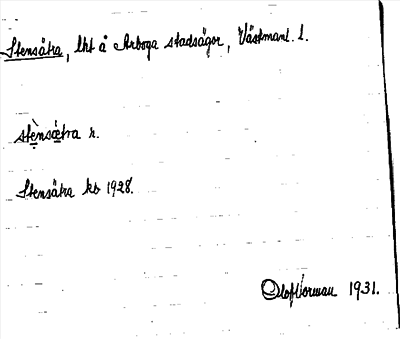 Stensätra, lht å Arboga stadsägor, Västmanl. l.
stènsætra n.
Stensätra kb 1928.
Olof Vorman 1931.